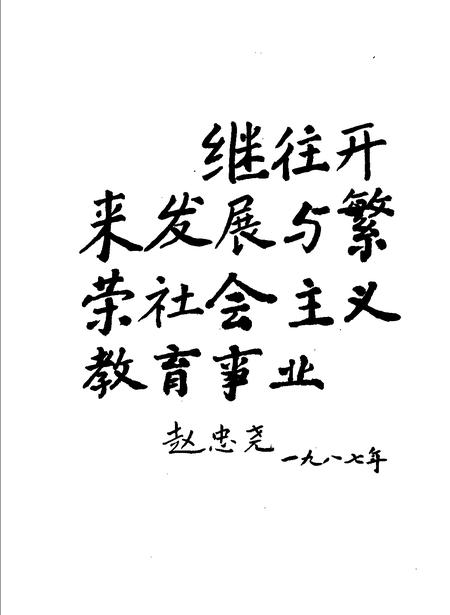 继往开
来发展与繁
荣社会主义
教育事业
赵忠尧 一九八七年